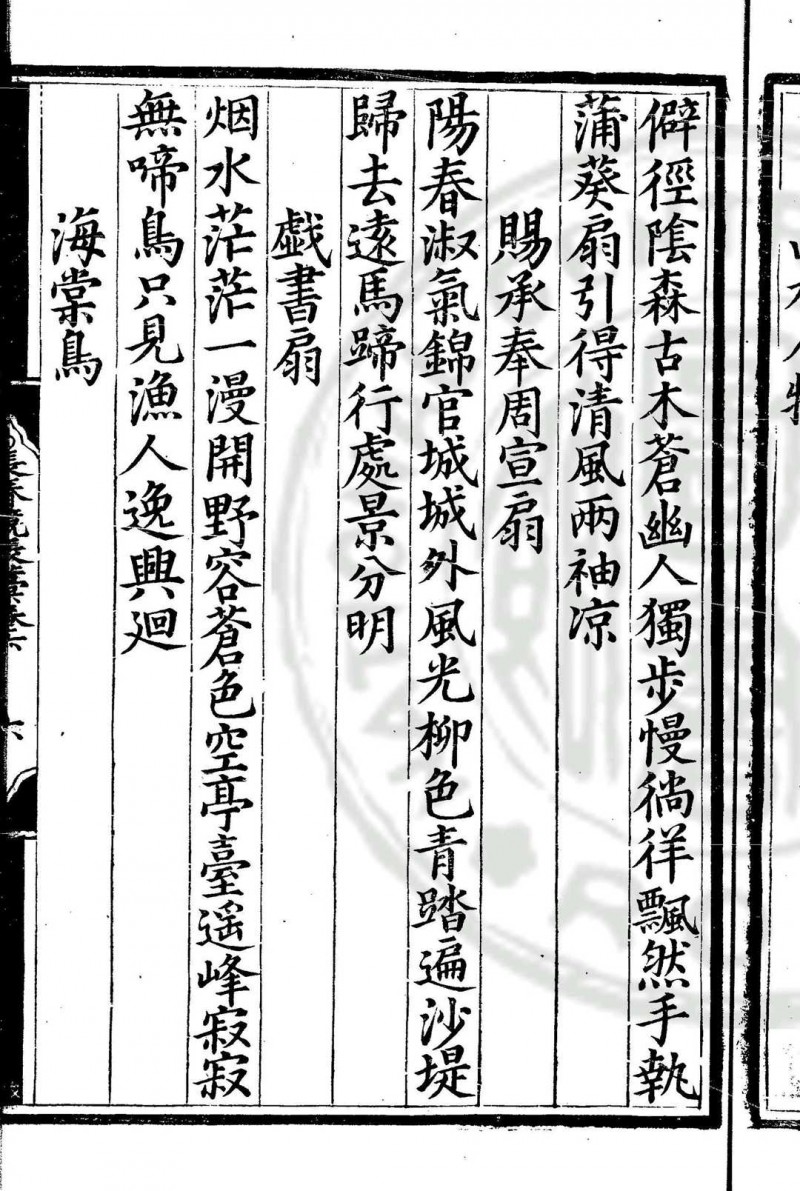 僻徑陰森古木蒼幽人獨步慢徜徉飄然手執
蒲葵扇引得清風两袖凉
賜承奉周宣扇
陽春淑氣錦官城城外風光柳色青踏遍沙堤
歸去遠馬蹄行處景分明
戯書扇
烟水茫茫一漫開野容蒼色空亭臺遥峰寂寂
無啼鳥只見漁人逸興廻
海棠鳥